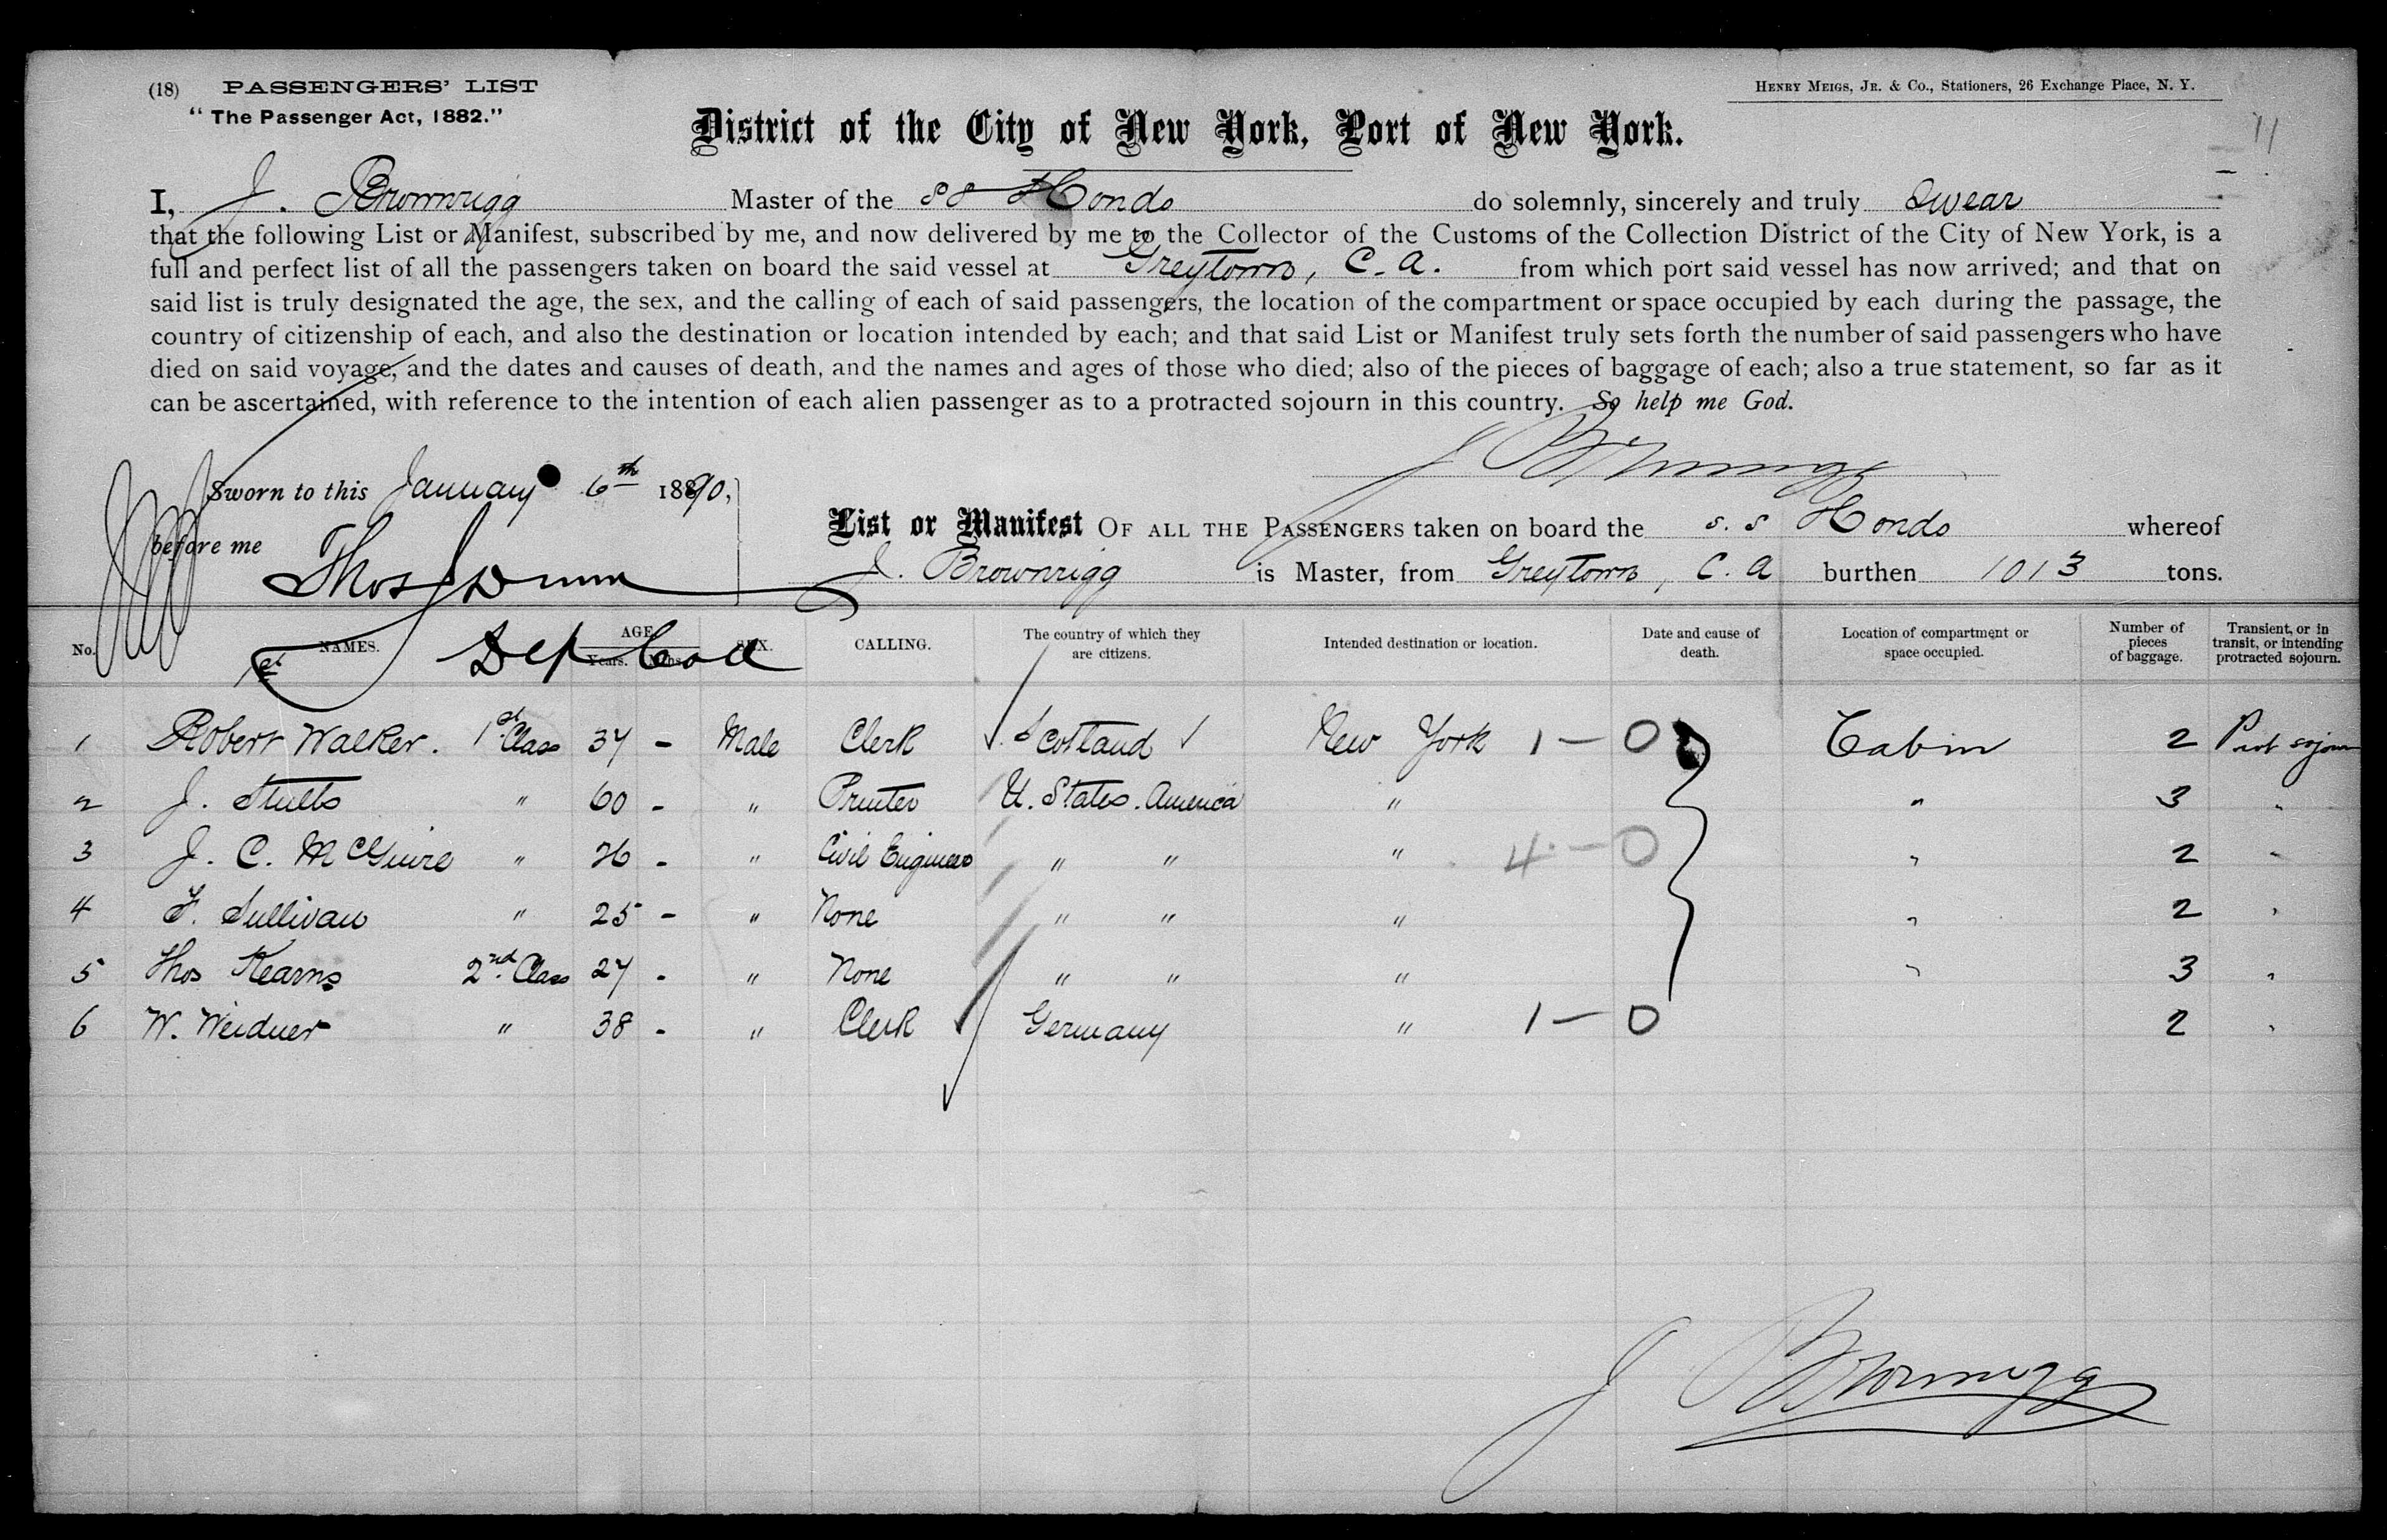 (18) PASSENGERS' LIST
"The Passenger Act, 1882."
HENRY MEIGS, JR. & Co., Stationers, 26 Exchange Place, N. Y.
District of the City of New York, Port of New York.
11
I, J. Brownrigg Master of the SS Hondo do solemnly, sincerely and truly swear
that the following List or Manifest, subscribed by me, and now delivered by me to the Collector of the Customs of the Collection District of the City of New York, is a
full and perfect list of all the passengers taken on board the said vessel at Greytown, C. A. from which port said vessel has now arrived; and that on
said list is truly designated the age, the sex, and the calling of each of said passengers, the location of the compartment or space occupied by each during the passage, the
country of citizenship of each, and also the destination or location intended by each; and that said List or Manifest truly sets forth the number of said passengers who have
died on said voyage, and the dates and causes of death, and the names and ages of those who died; also of the pieces of baggage of each; also a true statement, so far as it
can be ascertained, with reference to the intention of each alien passenger as to a protracted sojourn in this country. So help me God.
J Brownrigg
Sworn to this January 6th 1890,
before me Thos J Dunn
Dep Col
List or Manifest OF ALL THE PASSENGERS taken on board the S.S Hondo whereof
J. Brownrigg is Master, from Greytown, C. A burthen 1013 tons.
No. NAMES. AGE. Years. Mths. SEX. CALLING. The country of which they are citizens. Intended destination or location. Date and cause of death. Location of compartment or space occupied. Number of pieces of baggage. Transient, or in transit, or intending protracted sojourn.
1 Robert Walker. 1st Class 37 - Male Clerk Scotland New York 1-0 Cabin 2 Prot sojourn
2 J. Stults " 60 - " Printer U. States. America " " 3 "
3 J. C. McGuire " 26 - " Civil Engineer " " " 4-0 " 2 "
4 F. Sullivan " 25 - " None " " " " 2 "
5 Thos Kearns 2nd Class 27 - " None " " " " 3 "
6 W. Weidner " 38 - " Clerk Germany " 1-0 2 "
J Brownrigg